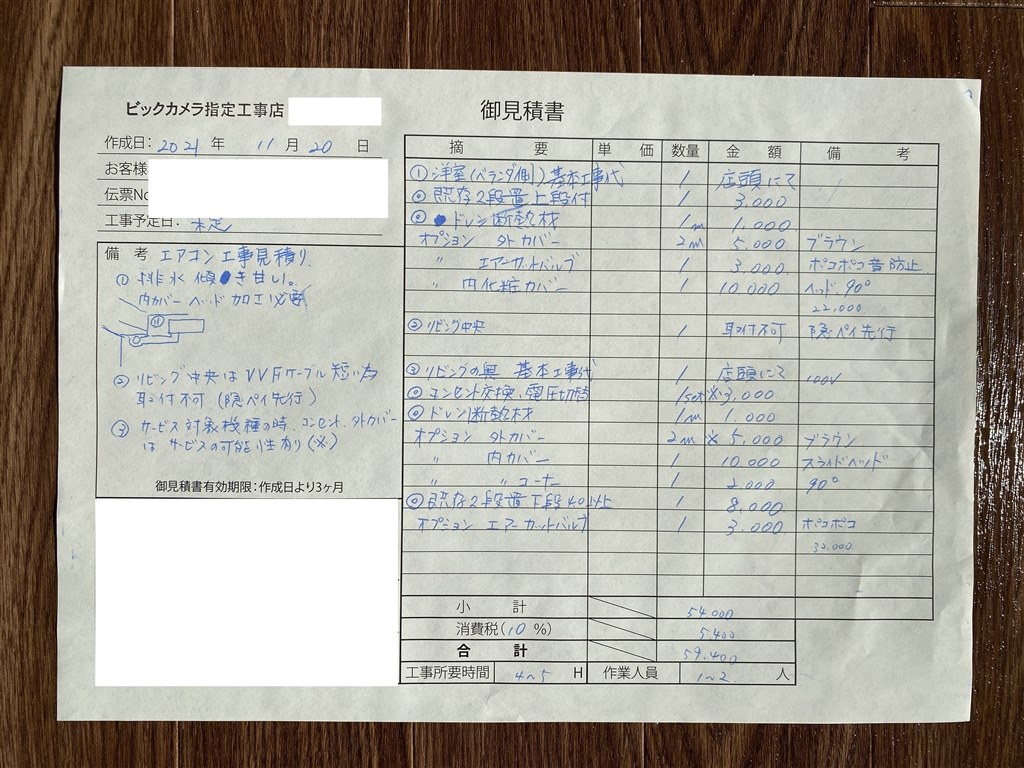 ビックカメラ指定工事店
御見積書
作成日: 2021 年 11 月 20 日
お客様
伝票No
工事予定日: 未定
備 考 エアコン工事見積り
① 排水傾き甘い。
内カバーヘッド加工必要
② リビング中央はVVFケーブル短い為
取付不可 (隠ペイ先行)
③ サービス対象機種の時、コンセント、外カバー
はサービスの可能性有り(※)
御見積書有効期限:作成日より3ヶ月
摘 要 単 価 数量 金 額 備 考
① 洋室(ベランダ側)基本工事代 1 店頭にて
◎ 既存2段置上段付 1 3,000
◎ ドレン断熱材 1m 1,000
オプション 外カバー 2m 5,000 ブラウン
〃 エアーカットバルブ 1 3,000 ポコポコ音防止
〃 内化粧カバー 1 10,000 ヘッド、90°
22,000
② リビング中央 1 取付不可 隠ペイ先行
③ リビングの奥 基本工事代 1 店頭にて 100V
◎ コンセント交換、電圧切替 1set ※3,000
◎ ドレン断熱材 1m 1,000
オプション 外カバー 2m ※5,000 ブラウン
〃 内カバー 1 10,000 スライドヘッド
〃 〃 コーナー 1 2,000 90°
◎ 既存2段置下段40以上 1 8,000
オプション エアーカットバルブ 1 3,000 ポコポコ
32,000
小 計 54,000
消費税(10%) 5,400
合 計 59,400
工事所要時間 4~5 H 作業人員 1~2 人